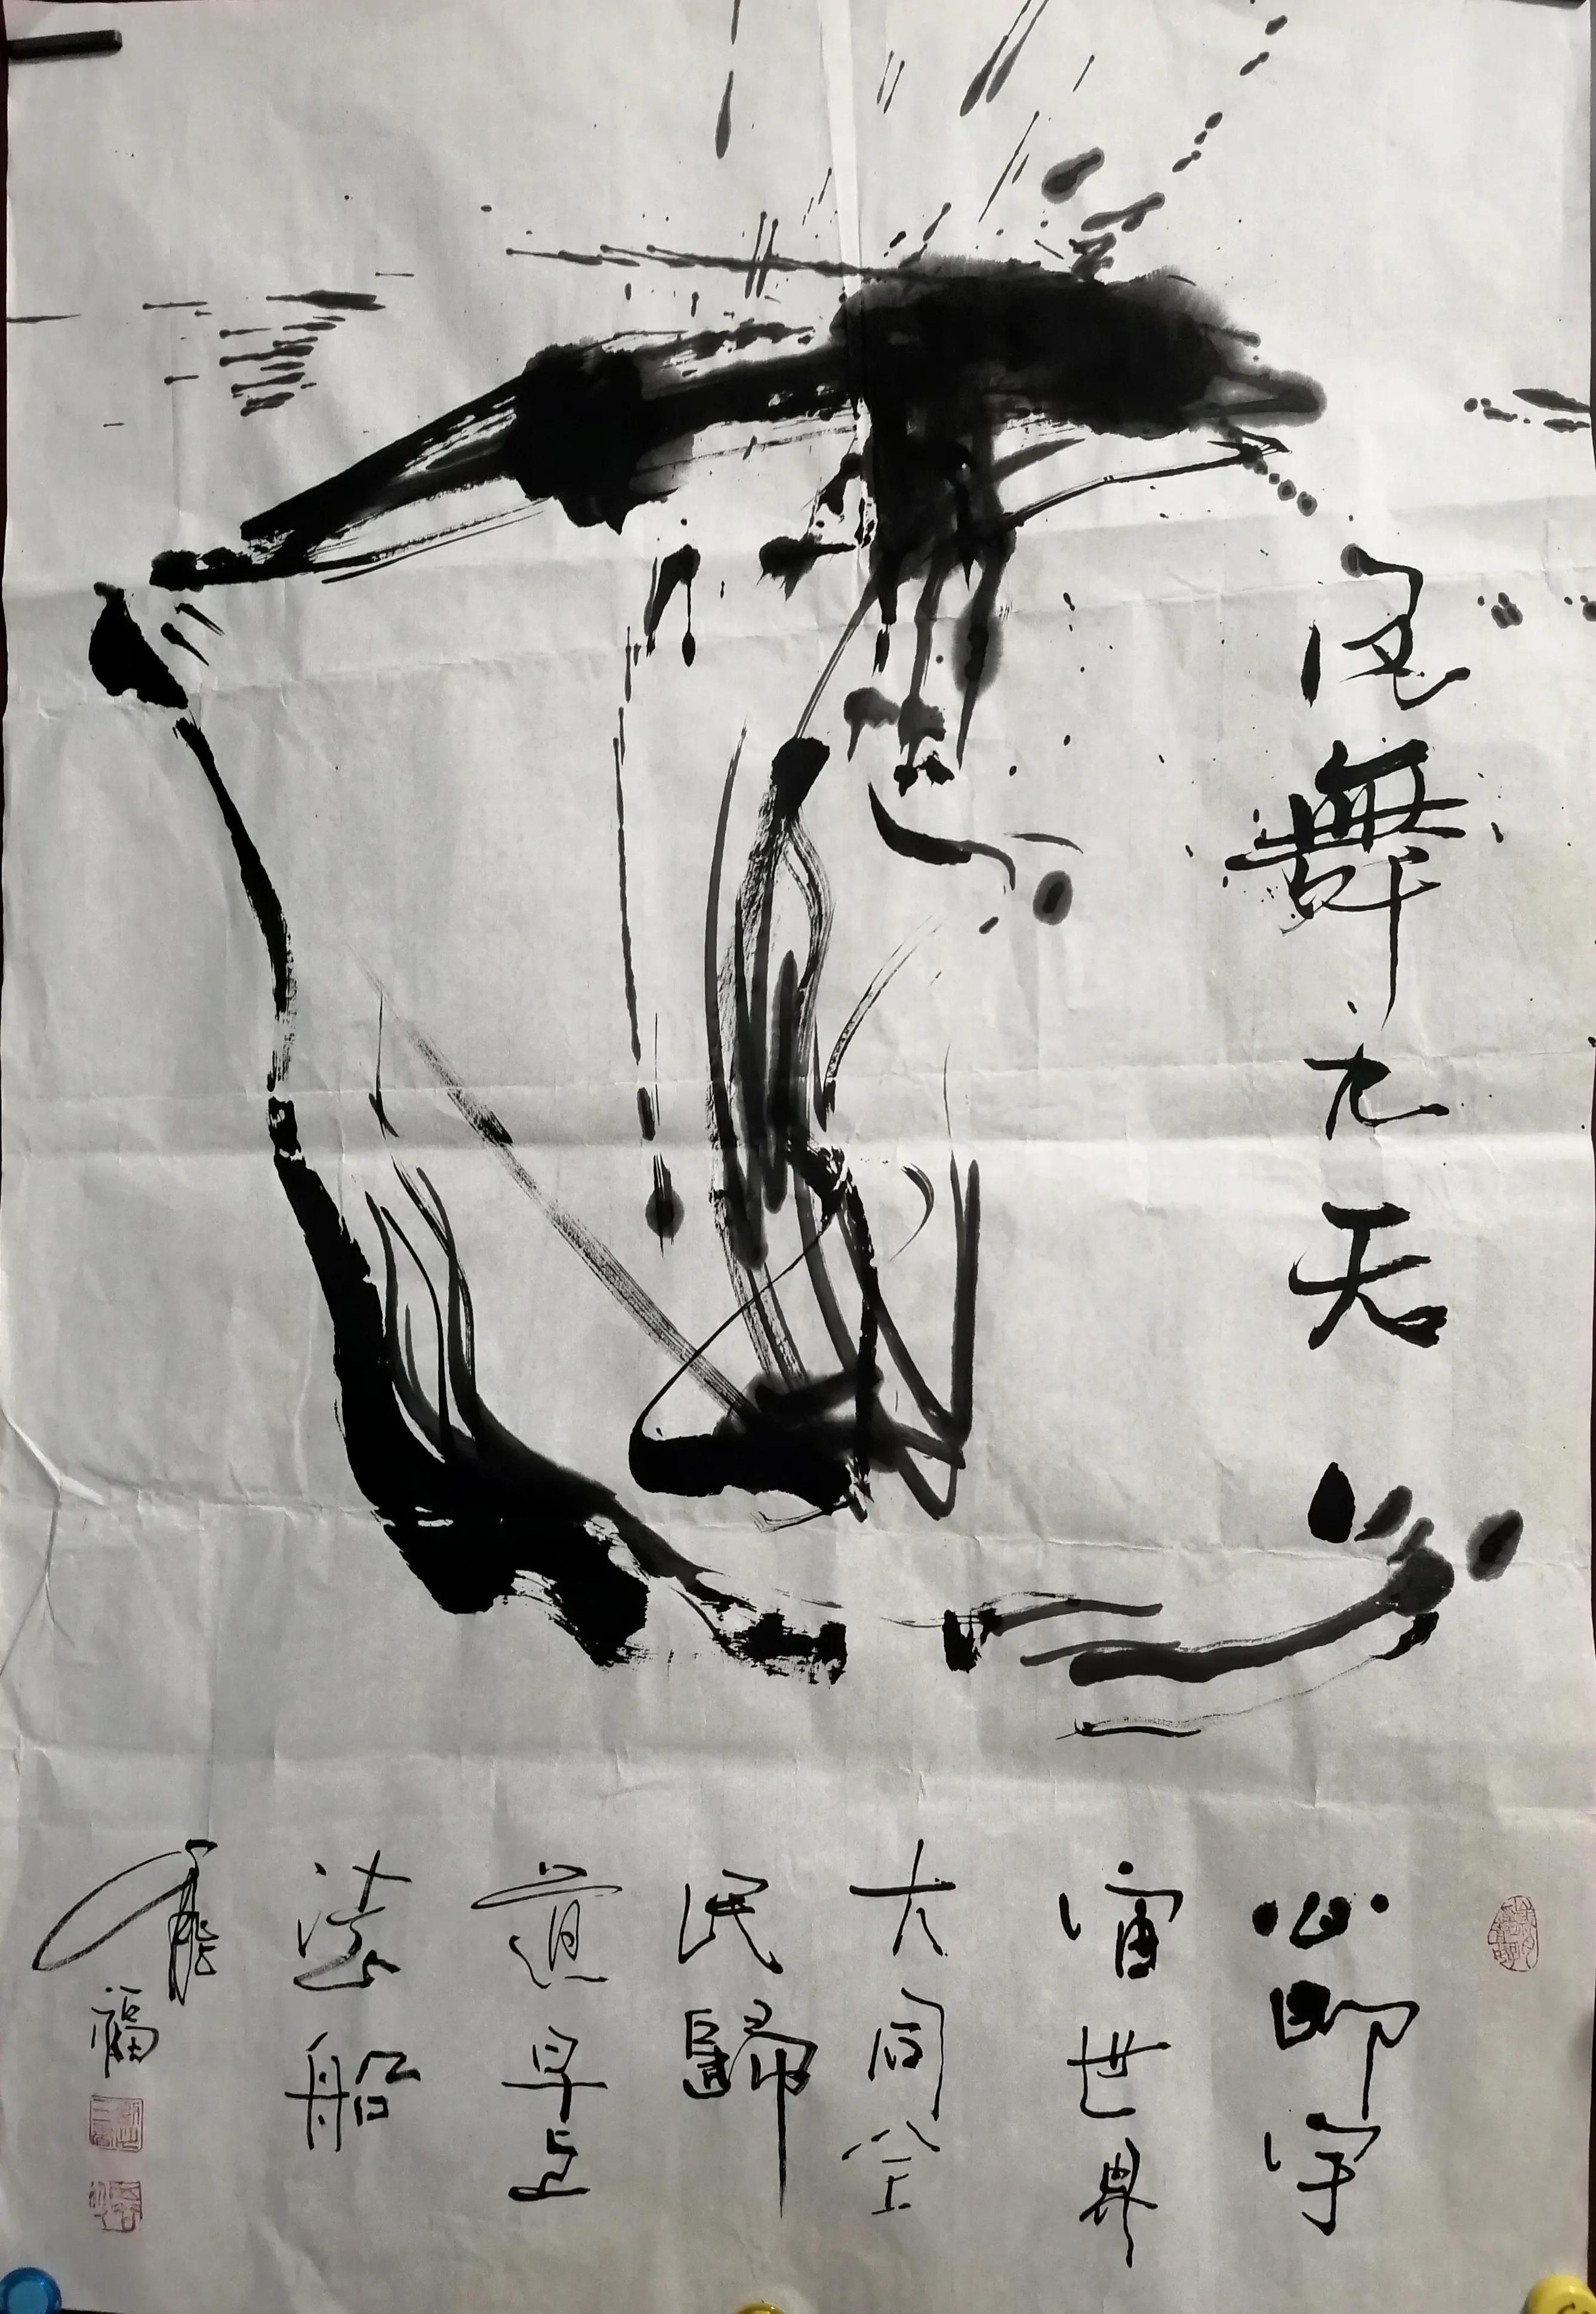 舞九天
心即宇
宙世界
大同全
民歸
道早
法船
福